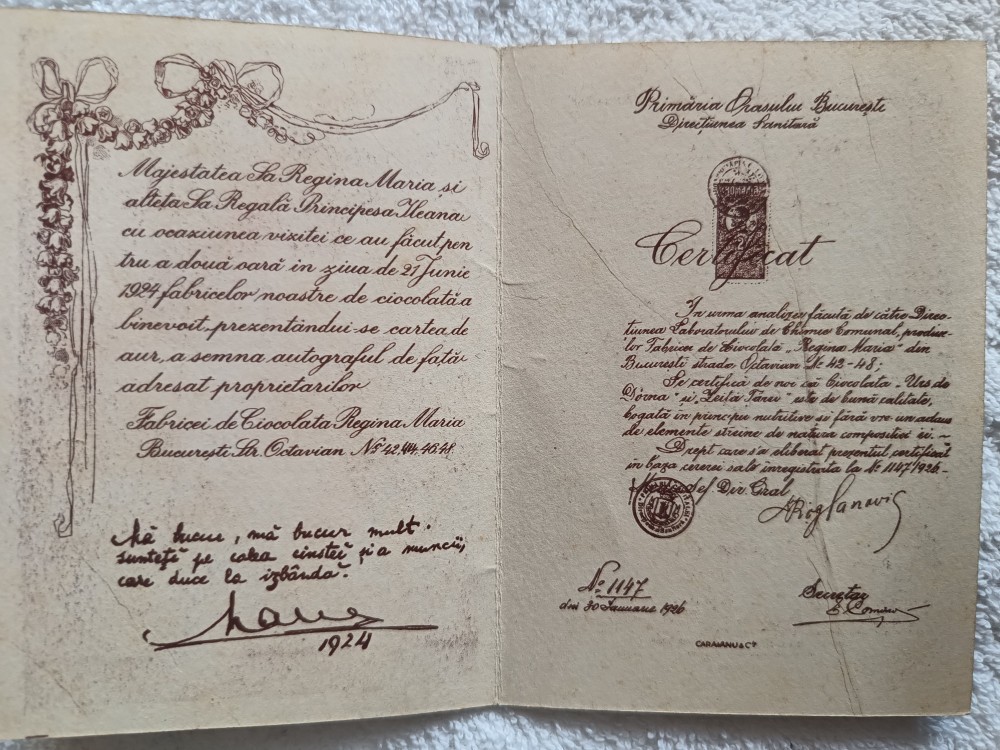 Majestatea Sa Regina Maria și
alteța Sa Regală Principesa Ileana
cu ocaziunea vizitei ce au făcut pen
tru a două oară in ziua de 21 Junie
1924 fabricelor noastre de ciocolată a
binevoit prezentându-se cartea de
aur, a semna autograful de față
adresat proprietarilor
Fabricei de Ciocolata Regina Maria
București Str. Octavian No 42.44.46.48.
Mă bucur, mă bucur mult.
sunteți pe calea cinstei și a muncii,
care duce la izbândă.
Maria
1924
Primăria Orasului București
Direcțiunea Sanitară
ROMANIA
Certificat
In urma analizei făcută de către Direc-
țiunea Laboratorului de Chimie Comunal, produse-
lor Fabricei de Ciocolată „Regina Maria" din
București strada Octavian No 42-48;
Se certifică de noi că Ciocolata „Urs de
Dorna" și „Zeița Țărei" este de bună calitate,
bogată in principii nutritive si fără vre un adaus
de elemente streine de natura compoziției ei. -
Drept care s'a eliberat prezentul certificat
in baza cererei sale inregistrata la No 1147/926-
Sef. Dir. Gral
No 1147
din 30 Ianuarie 1926
Secretar
CARAIANU & Co